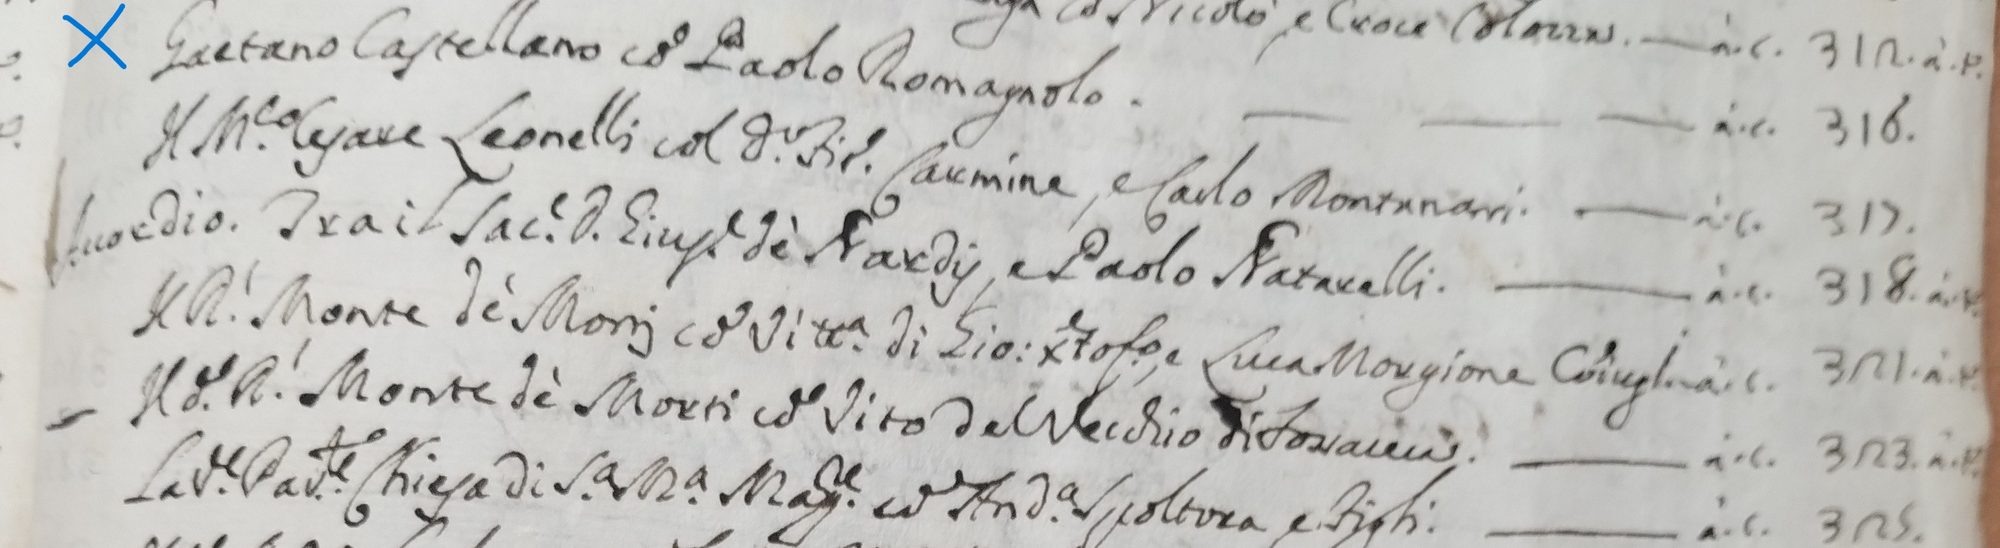 co Nicolò, e Croce Colazzo. — à. c. 312. à. t.
Gaetano Castellano cō Paolo Romagnolo. — — — à. c. 316.
Il M.co Cesare Leonelli col d.r Fis. Carmine, e Carlo Montanari. — à. c. 317.
Accordio. Tra il Sac.e D. Gius.e dè Nardis, e Paolo Natarelli. — à. c. 318. à. t.
Il R.l Monte dè Morti cō Vitt.a di Gio: Xtof.o, e Luca Morgione Coiugl. à. c. 321. à. t.
Il d.o R.l Monte dè Morti cō Vito del Vecchio di . — à. c. 323. à. t.
La Ve. Chiesa di S.a M.a Mag.re cō And.a Spoltora e figli. — à. c. 325.